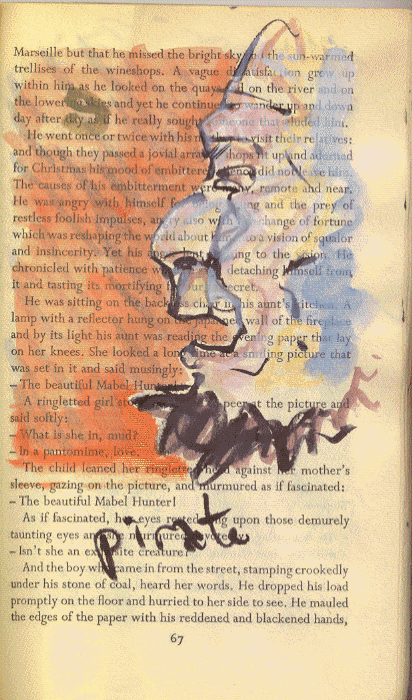 Marseille but that he missed the bright sky the sun-warmed
trellises of the wineshops. A vague dissatisfaction grew up
within him as he looked on the quays and on the river and on
the lower skies and yet he continued wander up and down
day after day as if he really sought someone that eluded him.
He went once or twice with his visit their relatives:
and though they passed a jovial array shops lit up and adorned
for Christmas his mood of embittered silence did not leave him.
The causes of his embitterment were many, remote and near.
He was angry with himself for being and the prey of
restless foolish impulses, angry also with change of fortune
which was reshaping the world about him into a vision of squalor
and insincerity. Yet his lent nothing to the vision. He
chronicled with patience what detaching himself from
it and tasting its mortifying flavour secret.
He was sitting on the backless chair in his aunt's kitchen. A
lamp with a reflector hung on the japanned wall of the fireplace
and by its light his aunt was reading the evening paper that lay
on her knees. She looked a long time at a smiling picture that
was set in it and said musingly:
– The beautiful Mabel Hunter!
A ringletted girl peer at the picture and
said softly:
– What is she in, mud?
– In a pantomime, love.
The child leaned her ringletted head against her mother's
sleeve, gazing on the picture, and murmured as if fascinated:
– The beautiful Mabel Hunter!
As if fascinated, her eyes rested long upon those demurely
taunting eyes and she murmured devotedly:
– Isn't she an exquisite creature?
And the boy who came in from the street, stamping crookedly
under his stone of coal, heard her words. He dropped his load
promptly on the floor and hurried to her side to see. He mauled
the edges of the paper with his reddened and blackened hands,
67
pirate